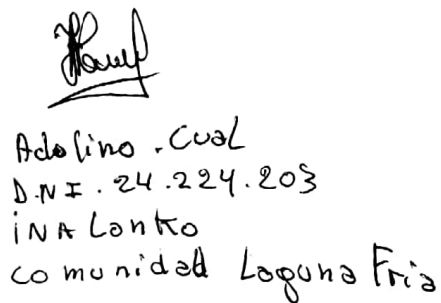 Adolino . Cual
D.N.I . 24.224.203
iNALonko
comunidad Laguna Fria